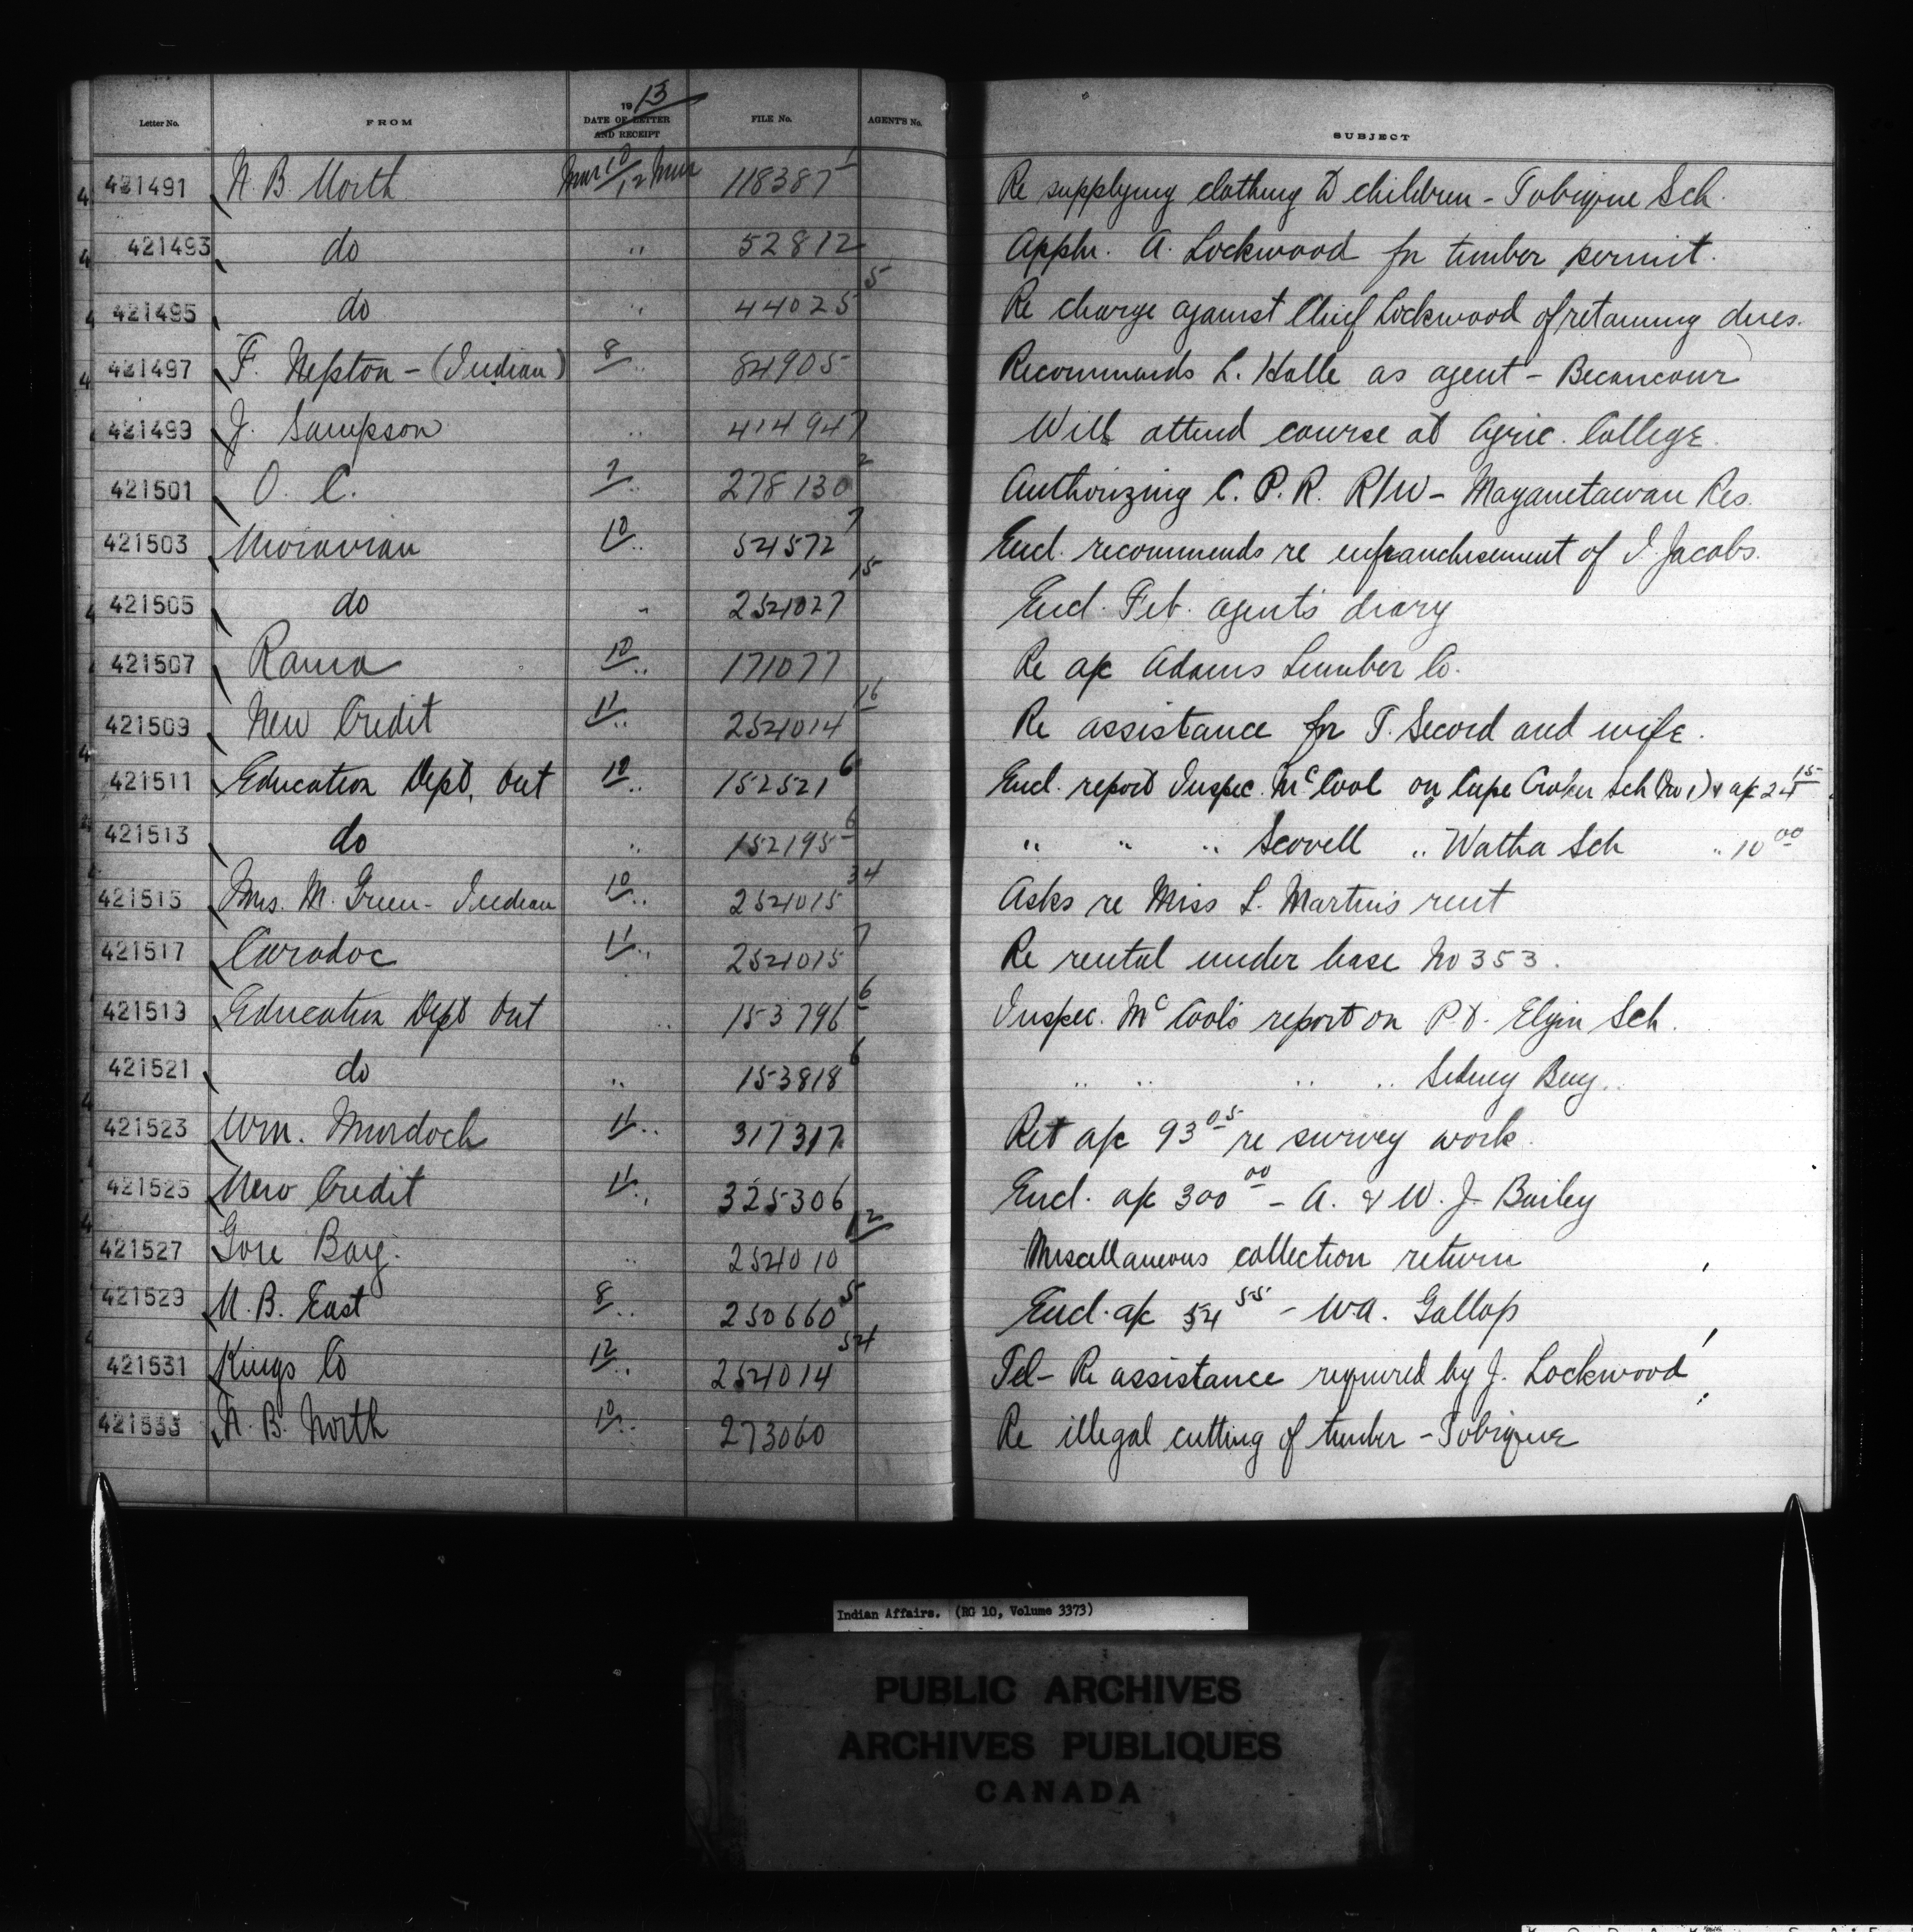 Letter No. FROM 1913 DATE OF LETTER AND RECEIPT FILE No. AGENT'S No. SUBJECT
421491 N. B. North Mar 10/12 Mar 118387 1 Re supplying clothing to children - Tobique Sch.
421493 do " 52812 Appln. A. Lockwood for timber permit.
421495 do " 44025 5 Re charge against Chief Lockwood of retaining dues.
421497 F. Nepton - (Indian) 8 " 84905 Recommends L. Halle as agent - Becancour
421499 J. Sampson " 414947 Will attend course at Agric. College.
421501 O. C. 7 " 278130 2 Authorizing C. P. R. R/W - Maganetawan Res.
421503 Moravian 10 " 54572 7 Encl. recommends re enfranchisement of I. Jacobs.
421505 do " 254027 15 Encl. Feb. agent's diary
421507 Rama 10 " 171077 Re a/c Adams Lumber Co.
421509 New Credit 11 " 254014 16 Re assistance for T. Secord and wife.
421511 Education Dept, Ont 10 " 152521 6 Encl. report Inspec. McCool on Cape Croker Sch (No 1) & a/c 24 15
421513 do " 152195 6 " " " Scovell " Watha Sch " 10 00
421515 Mrs. M. Green - Indian 10 " 254015 34 Asks re Miss L. Martin's rent
421517 Caradoc 11 " 254015 7 Re rental under lease No 353.
421519 Education Dept Ont " 153796 6 Inspec. McCool's report on Pt. Elgin Sch.
421521 do " 153818 6 " " " " Sidney Bay "
421523 Wm. Murdoch 11 " 317317 Ret a/c 93 05 re survey work.
421525 New Credit 11 " 325306 Encl. a/c 300 00 - A. & W. J. Bailey
421527 Gore Bay. " 254010 12 Miscellaneous collection return
421529 N. B. East 8 " 250660 5 Encl. a/c 54 55 - W.A. Gallop
421531 Kings Co 12 " 254014 54 Tel - Re assistance required by J. Lockwood
421533 N. B. North 10 " 273060 Re illegal cutting of timber - Tobique
Indian Affairs. (RG 10, Volume 3373)
PUBLIC ARCHIVES
ARCHIVES PUBLIQUES
CANADA